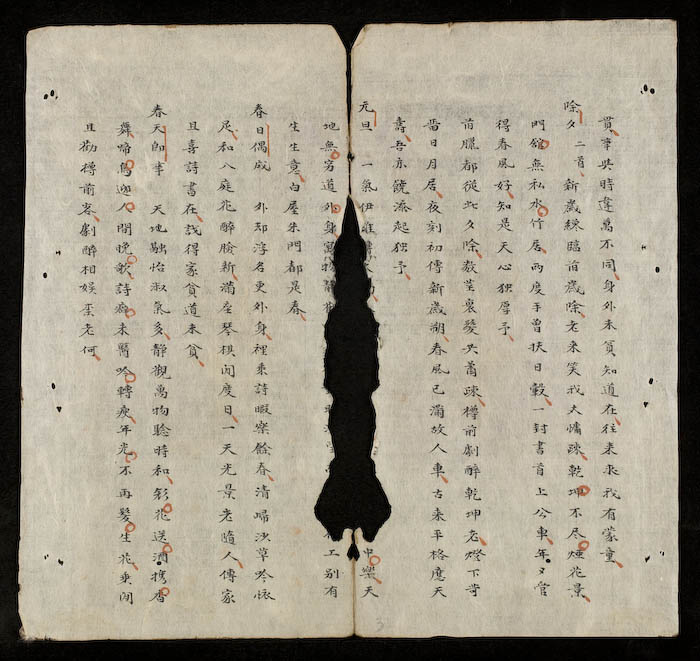 與時違萬不同身外未貧知道在往来求我有蒙童
除夕 二首 新歲纔臨旧歲除老来笑我大慵疎乾坤不尽煙花景
門舘無私水竹居兩度手曾扶日轂一封書首上公車年夕官
得春風好知是天心独厚予
前臘都從此夕除数莖衰髮共蕭疎樽前劇醉乾坤老燈下
畨日月居夜刻初傳新歲朔春風已滿故人車古来平格應天
壽吾亦饒添起独予
元旦 一氣伊誰 中樂天
地無窮道外身 工别有
生生意白屋朱門都是春
春日偶成 外却淳名更外身裡乗詩暇樂餘春清 草吟懐
和入庭花醉臉新滿座琴棋閒度日一天光景老隨人傳家
且喜詩書在 得家貧道未貧
春天即事 天地融怡淑氣多静觀萬物 時和彩花送酒携香
舞啼鳥迎人閒晩歌詩癖未醫吟轉瘦年光不再髮生花乗閒
且勸樽前客劇醉相娯 老何